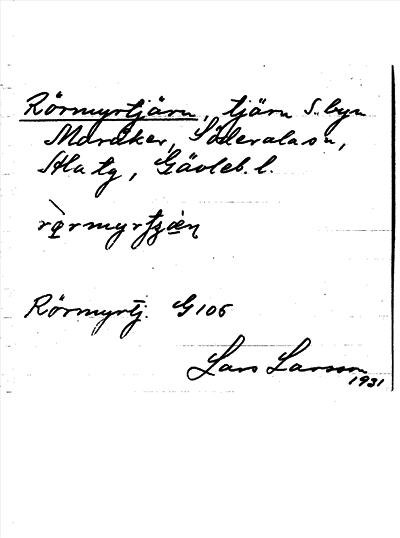 Rörmyrtjärn, tjärn S. byn
Maråker, Söderala sn,
Ala tg, Gävleb. l.
Rörmyrtj. G 106
Lars Larsson
1931